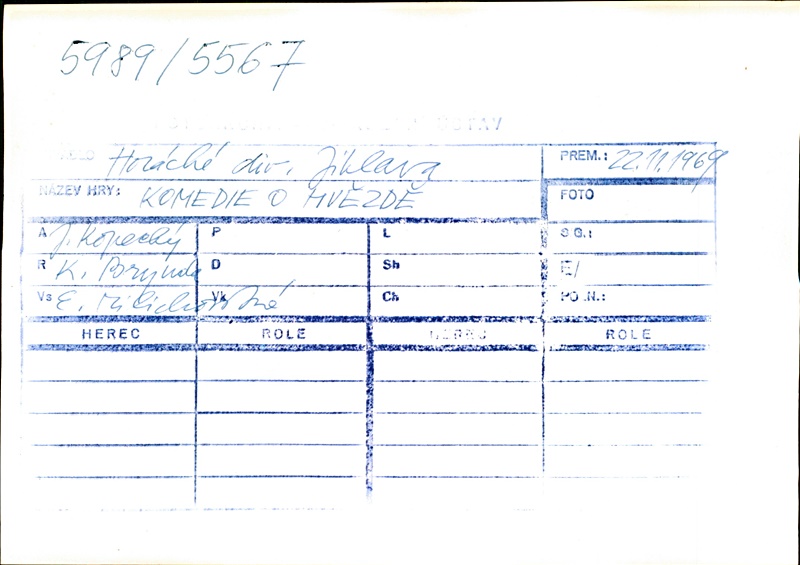 5989/5567
Horácké div. Jihlava PREM.: 22.11.1969
NÁZEV HRY: KOMEDIE O HVĚZDĚ FOTO
A J. Kopecký P L SG.:
R K. Porynda D Sh E/
Vs E. Milichovská Vk Ch PO.N.:
HEREC ROLE HEREC ROLE